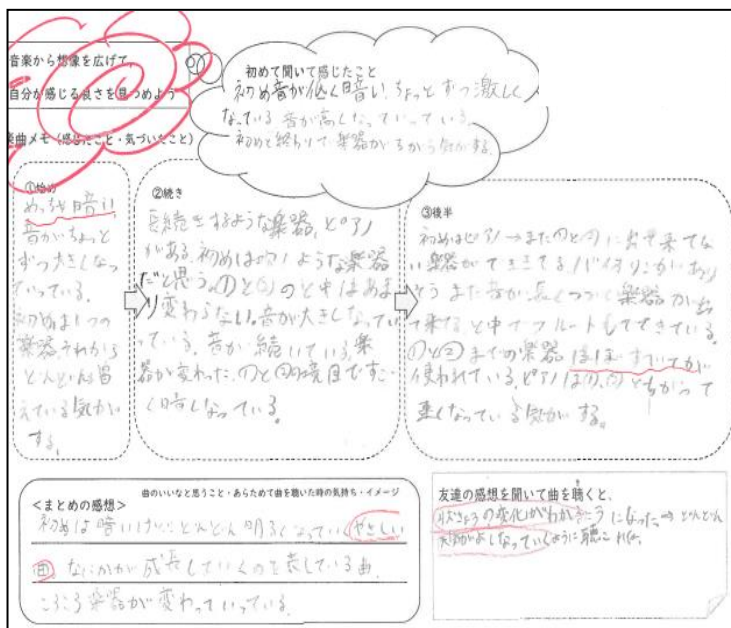 音楽から想像を広げて,
自分が感じる良さを見つめよう
初めて聞いて感じたこと
初め音が低く暗い、ちょっとずつ激しく
なっている 音が高くなっていっている。
初めと終わりで楽器がちがう気がする。
楽曲メモ(感じたこと・気づいたこと)
①始め
めっちゃ暗い
音がちょっと
ずつ大きくなっ
ていっている。
初めは1つの
楽器それから
どんどん増
えている気が
する。
②続き
長続きするような楽器、ピアノ
がある。初めは のような楽器
だと思う。①と②のと中はあま
り変わらない。音が大きくなってい
っている。音が続いている。楽
器が変わった。①と②の境目ですご
く暗くなっている。
③後半
初めはピアノ→また①と②に出て来てな
い楽器がでてきてる。バイオリン
また音が長くつづく楽器が出
て来た。と中でフルートもでてきている。
①と②までの楽器ほぼすべてが
使われている。ピアノは①、②とちがって
重くなっている気がする。
<まとめの感想>
曲のいいなと思うこと・あらためて曲を聴いた時の気持ち・イメージ
初めは暗いけどどんどん明るくなっていくやさしい
曲。なにかが成長していくのを表している曲。
ころころ楽器が変わっていっている。
友達の感想を聞いて曲を聴くと、
の変化がわかるようになった。 どんどん
なっていくように聴こ